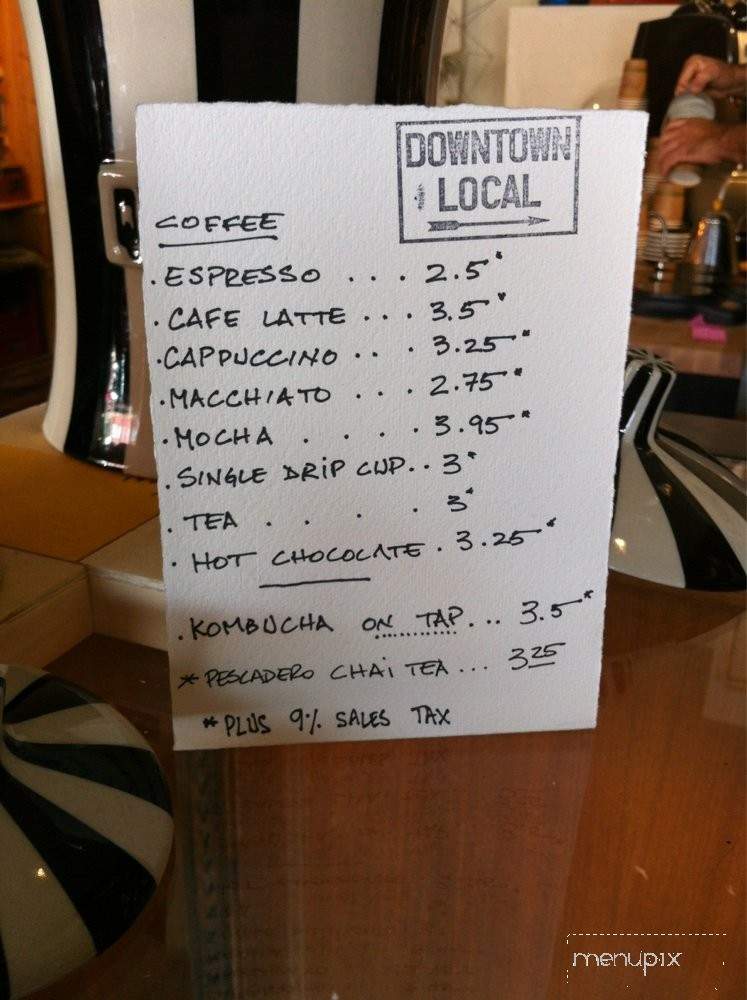 DOWNTOWN
LOCAL
COFFEE
. ESPRESSO . . . 2.5*
. CAFE LATTE . . . 3.5*
. CAPPUCCINO . . . 3.25*
. MACCHIATO . . . 2.75*
. MOCHA . . . . 3.95*
. SINGLE DRIP CUP . . 3*
. TEA . . . . 3*
. HOT CHOCOLATE . 3.25*
. KOMBUCHA ON TAP... 3.5*
* PESCADERO CHAI TEA ... 3 25
* PLUS 9% SALES TAX
menupix